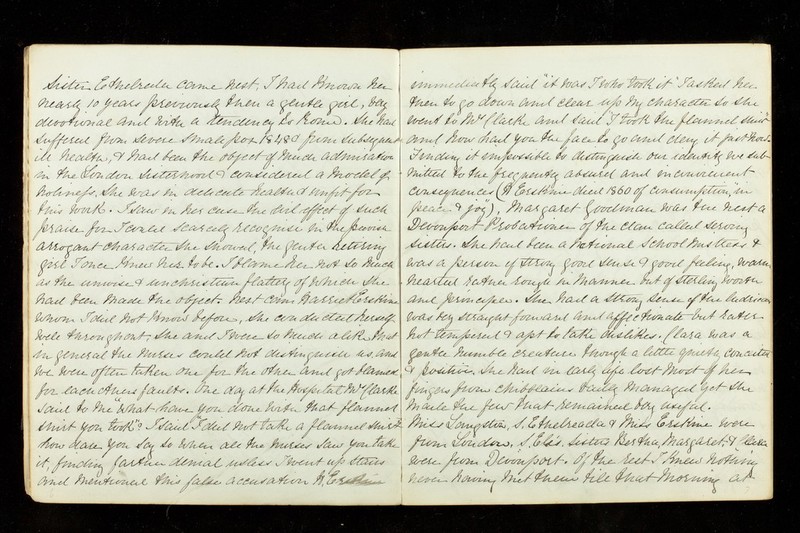 Sister Ethelreda came next, I had known her
nearly 10 years previously then a gentle girl, very
devotional and with a tendency to Rome. She had
suffered from severe small pox 1848 & from subsequent
ill health, & had been the object of much admiration
in the London Sisterhood & considered a model of
holiness, She was in delicate health & unfit for
this work. I saw in her case the evil effect of such
praise for I could scarcely recognise in the
arrogant character she showed, the gentle retiring
girl I once knew her to be. I blame her not so much
as the unwise & unchristian flattery of which she
had been made the object. Next came Harriet Erskine
whom I did not know before, she conducted herself
well throughout, she and I were so much alike that
in general the nurses could not distinguish us, and
we were often taken one for the other and got blamed
for each others faults. One day at the Hospital Mrs Clarke
said to me "what have you done with that flannel
shirt you took"? I said I did not take a flannel shirt
how dare you say so when all the nurses saw you take
it, finding farther denial useless I went up stairs
and mentioned this false accusation H. Erskine
immediately said "it was I who took it" I asked her
then to go down and clear up my character so she
went to Mrs Clarke and said I took the flannel shirt
and how had you the face to go and deny it just now.
Finding it impossible to distinguish our identity we sub-
mitted to the frequently absurd and inconvenient
consequences (H Erskine died 1860 of consumption "in
peace & joy"). Margaret Goodman was the next a
Devonport Probationer of the class called serving
Sisters. She had been a National School Mistress &
was a person of strong good sense & good feeling, warm
hearted rather rough in manner but of sterling worth
and principle. She had a strong sense of the ludicrous
was very straightforward and affectionate but rather
hot tempered & apt to take dislikes. Clara was a
gentle humble creature though a little conceited
& positive. She had in early life lost most of her
fingers from chilblains badly managed yet she
made the few that remained very useful.
Miss Langston, S. Ethelreda & Miss Erskine were
from London, S. Eliz. Sisters Bertha, Margaret & Clara
were from Devonport. Of the rest I knew nothing
never having met them till that morning at